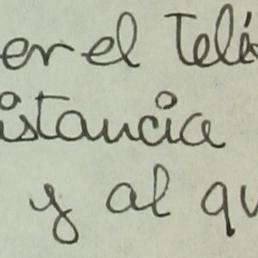 er el Telé
istancia
y al qu